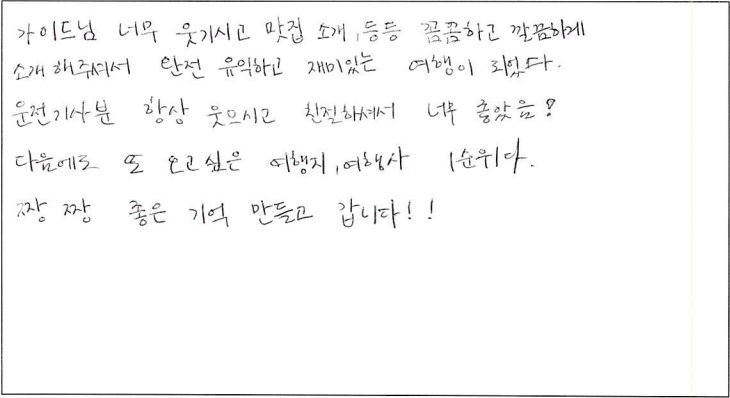 가이드님 너무 웃기시고 맛집 소개, 등등 꼼꼼하고 깔끔하게
소개해주셔서 완전 유익하고 재미있는 여행이 되었다.
운전기사분 항상 웃으시고 친절하셔서 너무 좋았음!
다음에도 또 오고싶은 여행지, 여행사 1순위다.
짱 짱 좋은 기억 만들고 갑니다!!